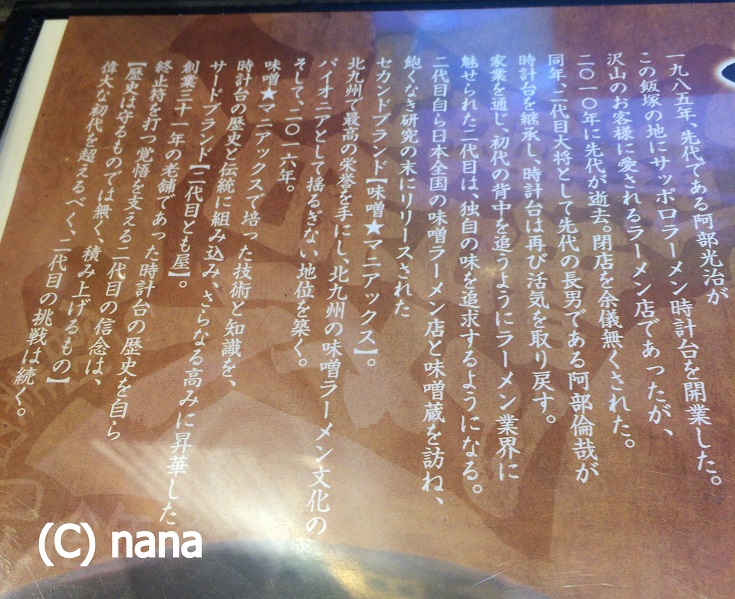 一九八五年、先代である阿部光治が
この飯塚の地にサッポロラーメン時計台を開業した。
沢山のお客様に愛されるラーメン店であったが、
二〇一〇年に先代が逝去。閉店を余儀無くされた。
同年、二代目大将として先代の長男である阿部倫哉が
時計台を継承し、時計台は再び活気を取り戻す。
家業を通じ、初代の背中を追うようにラーメン業界に
魅せられた二代目は、独自の味を追求するようになる。
二代目自ら日本全国の味噌ラーメン店と味噌蔵を訪ね、
飽くなき研究の末にリリースされた
セカンドブランド【味噌★マニアックス】。
北九州で最高の栄誉を手にし、北九州の味噌ラーメン文化の
パイオニアとして揺るぎない地位を築く。
そして、二〇一六年。
味噌★マニアックスで培った技術と知識を、
時計台の歴史と伝統に組み込み、さらなる高みに昇華した
サードブランド【二代目とも屋】。
創業三十一年の老舗であった時計台の歴史を自ら
終止符を打つ覚悟を支える二代目の信念は、
【歴史は守るものでは無く、積み上げるもの】
偉大な初代を超えるべく、二代目の挑戦は続く。
(C) nana